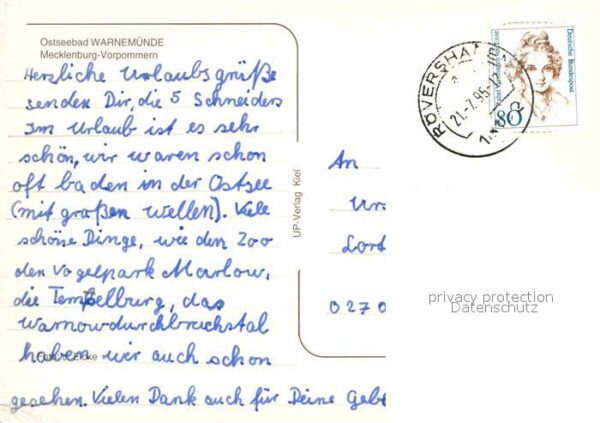 Ostseebad WARNEMÜNDE
Mecklenburg-Vorpommern
Herzliche Urlaubsgrüße
senden Dir, die 5 Schneiders
Im Urlaub ist es sehr
schön, wir waren schon
oft baden in der Ostsee
(mit großen wellen). Viele
schöne Dinge, wie den Zoo
den Vogelpark Marlow,
die Tempelburg, das
Warnowdurchbruchstal
haben wir auch schon
gesehen. Vielen Dank auch für Deine Geb
UP-Verlag Kiel
An
Lort
0270
RÖVERSHA
21.-7.95
Deutsche Bundespost
80
privacy protection
Datenschutz